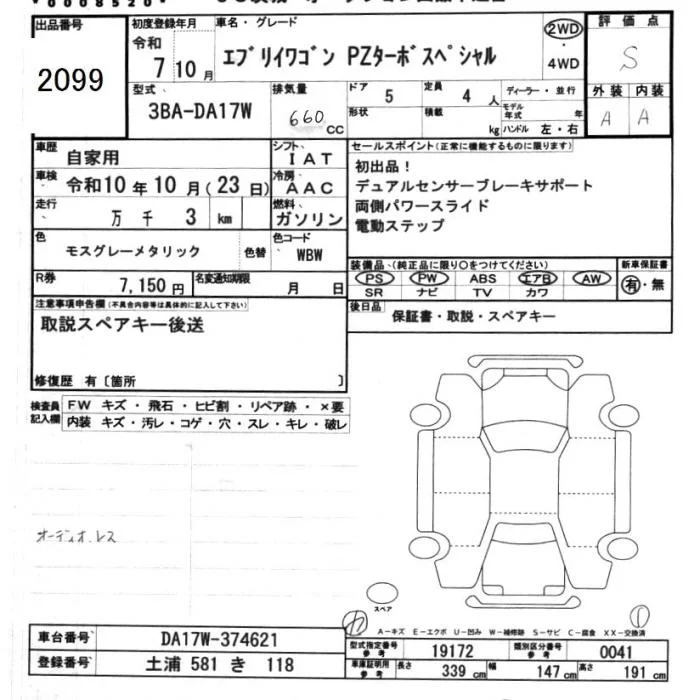 出品番号
2099
初度登録年月
令和
7 10 月
車名・グレード
エブリイワゴン PZターボスペシャル
2WD
・
4WD
評価点
S
外装 内装
A A
型式
3BA-DA17W
排気量
660 CC
ドア 5
定員 4 人
形状
積載 kg
ディーラー・並行
モデル年式 年
ハンドル 左・右
車歴 自家用
シフト IAT
車検 令和10年10月(23日)
冷房 AAC
走行 万 千 3 km
燃料 ガソリン
色 モスグレーメタリック 色替
色コード WBW
R券 7,150円
名変通知期限 月 日
セールスポイント(正常に機能するものに限ります)
初出品!
デュアルセンサーブレーキサポート
両側パワースライド
電動ステップ
装備品、(純正品に限り○をつけてください)
PS PW ABS エアB AW
SR ナビ TV カワ
新車保証書
有・無
後日品 保証書・取説・スペアキー
注意事項申告欄(不具合内容等は具体的に記入して下さい)
取説スペアキー後送
修復歴 有〔箇所 〕
検査員記入欄
FW キズ・飛石・ヒビ割・リペア跡・×要
内装 キズ・汚レ・コゲ・穴・スレ・キレ・破レ
オーディオレス
スペア
A-キズ E-エクボ U-凹み W-補修跡 S-サビ C-腐食 XX-交換済
車台番号 DA17W-374621
登録番号 土浦 581 き 118
型式指定番号 参考 19172
類別区分番号 参考 0041
車庫証明用 参考 長さ 339 cm 幅 147 cm 高さ 191 cm